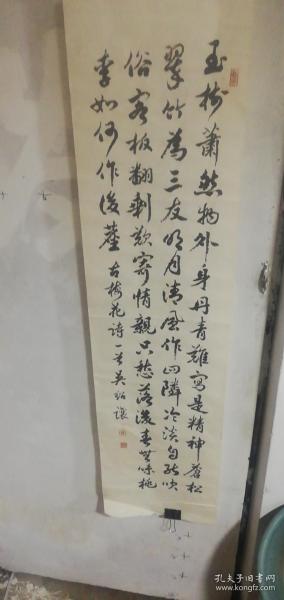 玉梅蕭然物外身丹青難寫是精神蒼松
翠竹為三友明月清風作四隣冷淡自能
俗客扳翻剩欲寄情親只愁落春無味桃
李如何作後塵 古梅花詩一首吳
孔夫子旧书网
kongfz.com